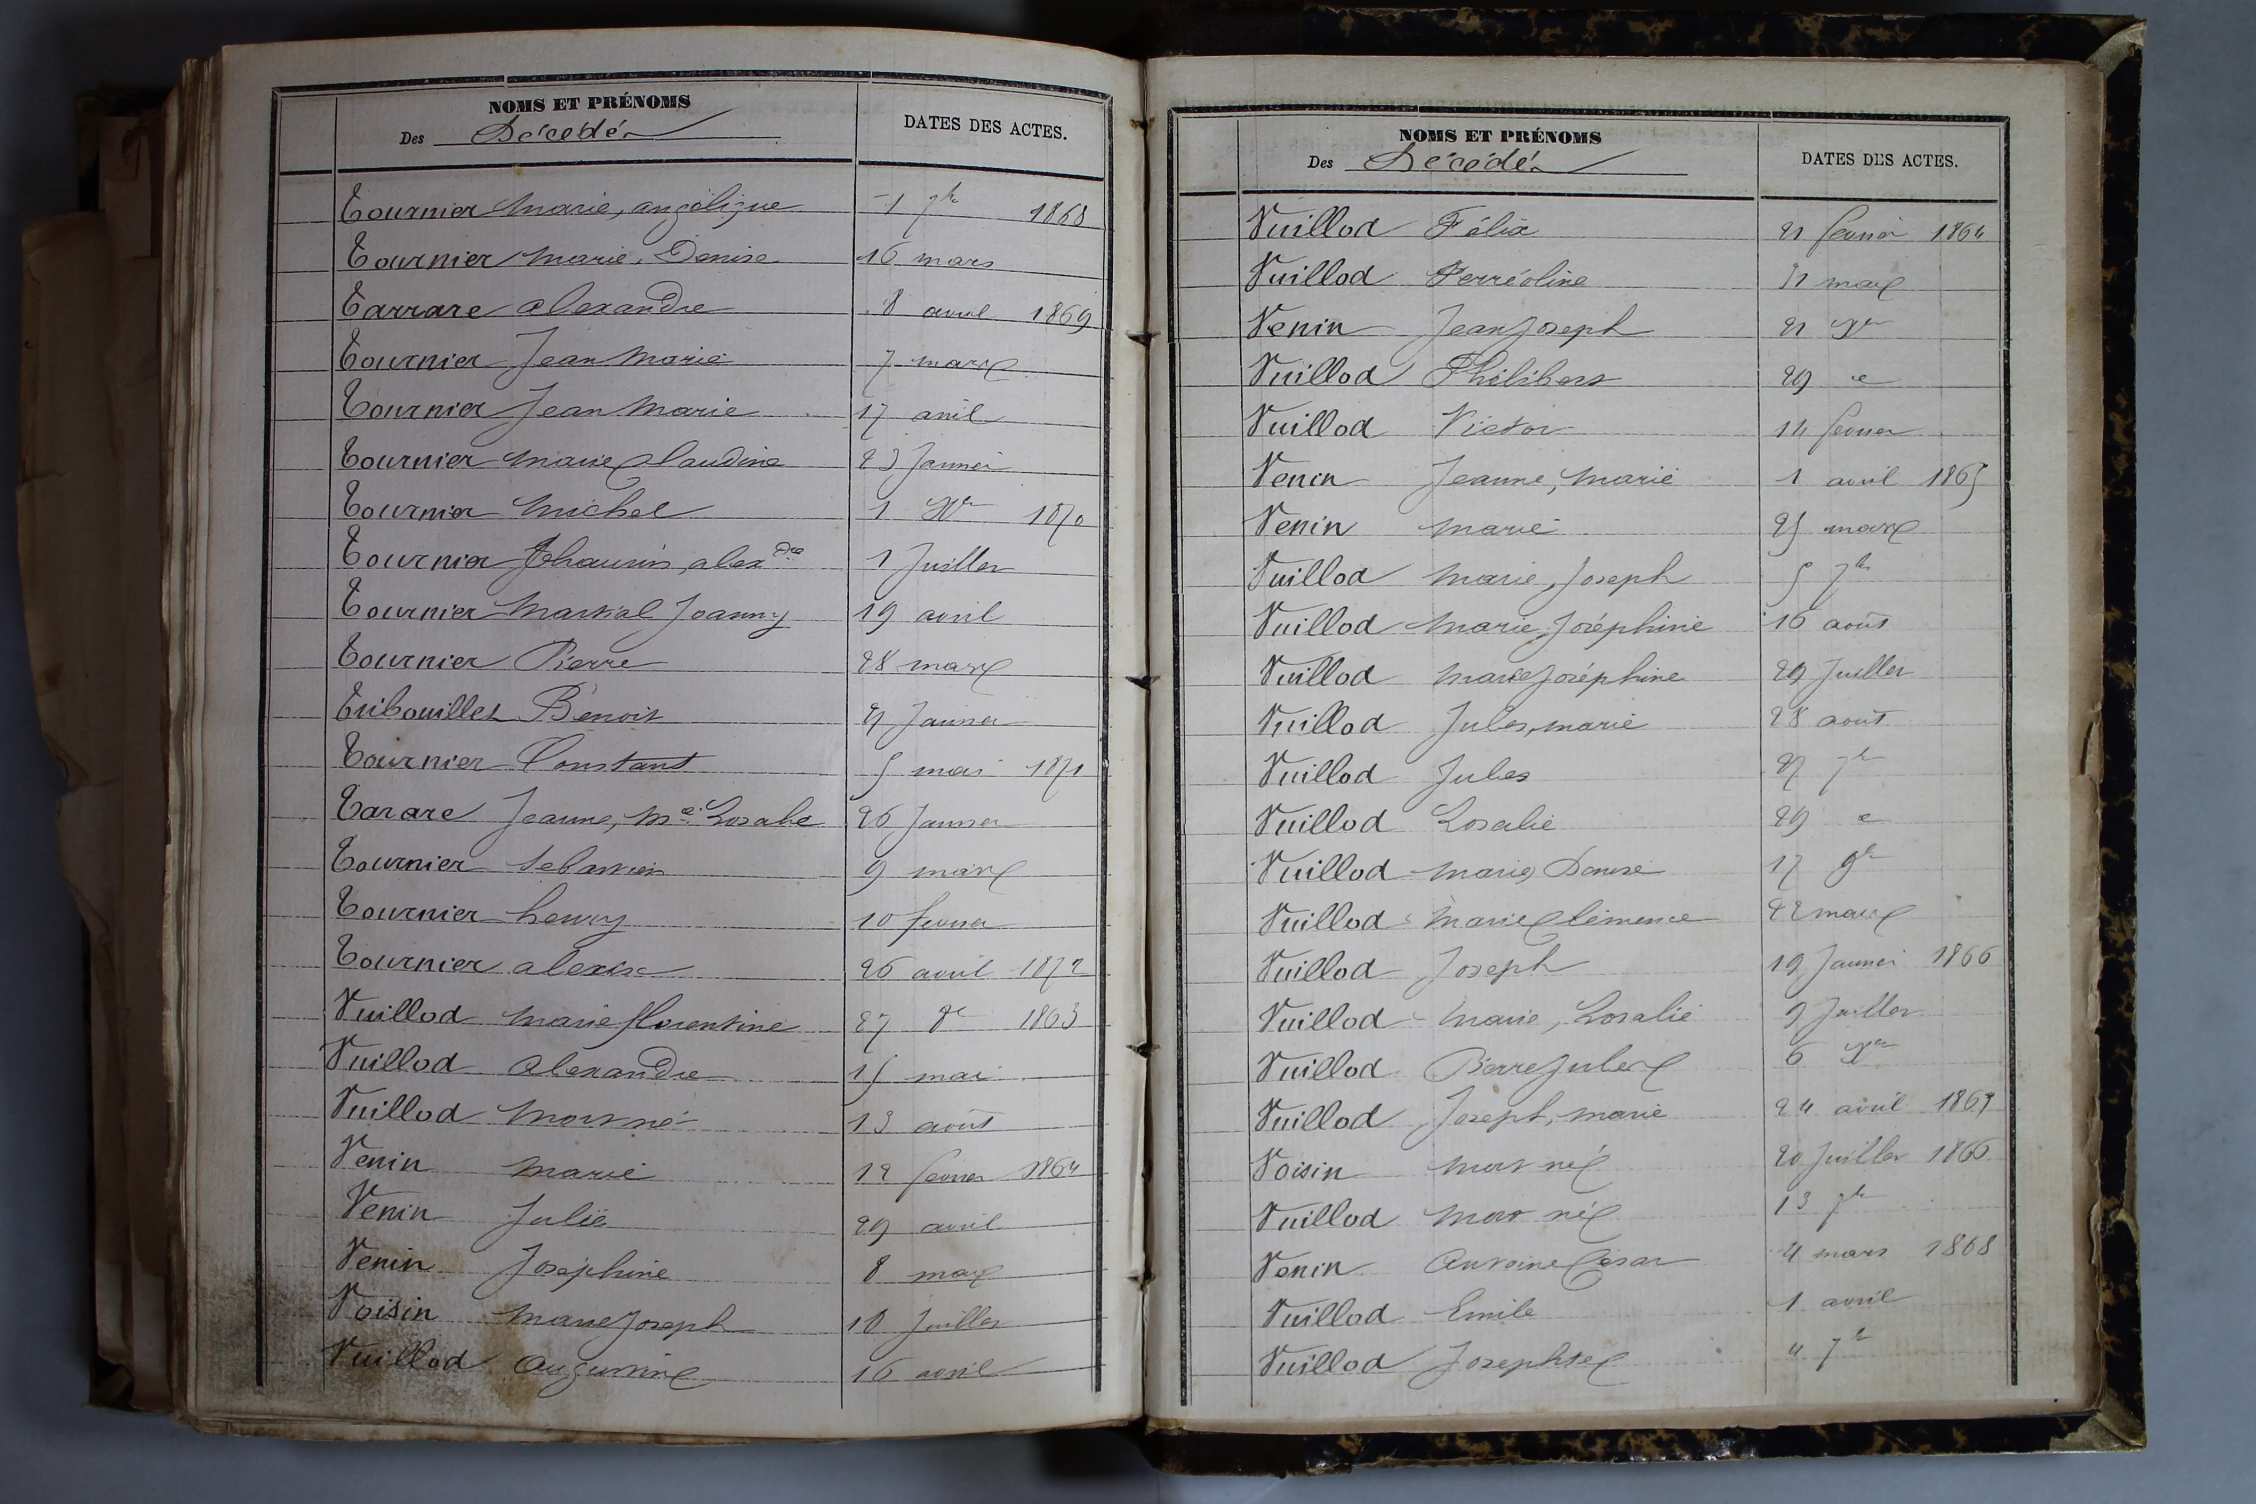 NOMS ET PRÉNOMS
Des Décédés
DATES DES ACTES.
Tournier Marie, angélique 1 7bre 1868
Tournier Marie, Denise 16 mars
Tarrare alexandre 8 avril 1869
Tournier Jean Marie 7 mars
Tournier Jean Marie 17 avril
Tournier Marie Claudine 23 Janvier
Tournier Michel 1 Xbre 1870
Tournier alexdre 1 Juillet
Tournier Martial Joanny 19 avril
Tournier Pierre 28 mars
Tribouillet Benoit Janvier
Tournier Constant 5 mai 1871
Tarare Jeanne, Mie Rosalie 26 Janvier
Tournier Sebastien 9 mars
Tournier henry 10 fevrier
Tournier alexis 26 avril 1872
Vuillod Marie florentine 27 1863
Vuillod Alexandre 15 mai
Vuillod Mort né 13 août
Venin Marie 12 fevrier 1864
Venin Julie 29 avril
Venin Joséphine 8 mars
Voisin Marie Joseph 10 Juillet
Vuillod Augustine 16 avril
NOMS ET PRÉNOMS
Des Décédés
DATES DES ACTES.
Vuillod Félix 21 fevrier 1864
Vuillod Ferréoline 31 mars
Venin Jean Joseph 21 Xbre
Vuillod Philibert 29 "
Vuillod Victor 14 fevrier
Venin Jeanne, Marie 1 avril 1865
Venin Marie 25 mars
Vuillod Marie, Joseph 5 7bre
Vuillod Marie, Joséphine 16 août
Vuillod Marie Joséphine 29 Juillet
Vuillod Jules, marie 28 août
Vuillod Jules 27 7bre
Vuillod Rosalie 29 "
Vuillod Marie Denise 17 9bre
Vuillod Marie Clémence 22 mars
Vuillod Joseph 19 Janvier 1866
Vuillod Marie, Rosalie 9 Juillet
Vuillod Pierre Jules 6 Xbre
Vuillod Joseph, marie 24 avril 1867
Voisin Mort né 20 Juillet 1866
Vuillod Mort né 13 7bre
Venin Antoine César 4 mars 1868
Vuillod Emile 1 avril
Vuillod Josephte 4 7bre